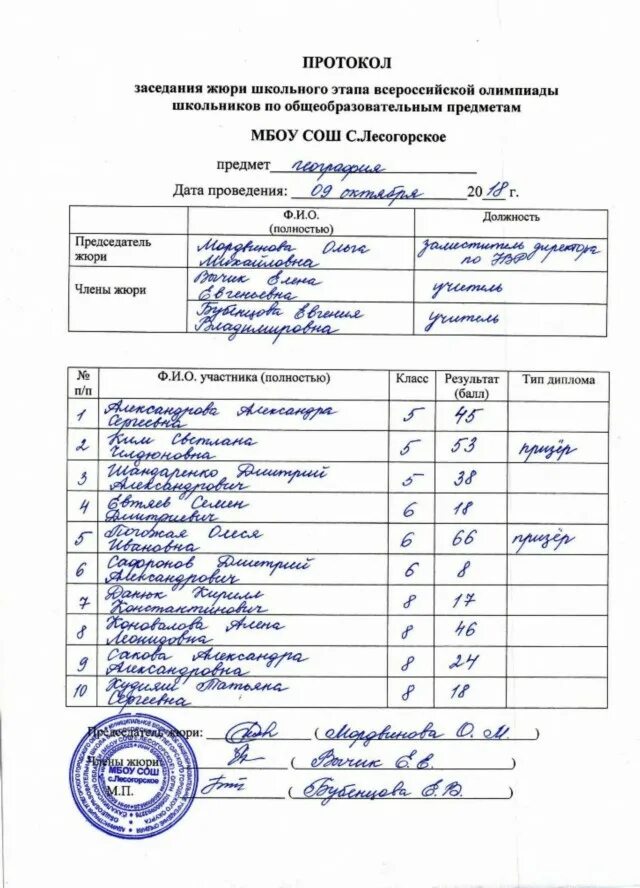 ПРОТОКОЛ
заседания жюри школьного этапа всероссийской олимпиады
школьников по общеобразовательным предметам
МБОУ СОШ С.Лесогорское
предмет география
Дата проведения: 09 октября 2018 г.
Ф.И.О. (полностью) Должность
Председатель жюри Мордвинова Ольга Михайловна заместитель директора по УВР
Члены жюри Вычик Елена Евгеньевна учитель
Бубенцова Евгения Владимировна учитель
№ п/п Ф.И.О. участника (полностью) Класс Результат (балл) Тип диплома
1 Александрова Александра Сергеевна 5 45
2 Ким Светлана 5 53 призёр
3 Шандаренко Дмитрий Александрович 5 38
4 Евтяев Семен Дмитриевич 6 18
5 Погожая Олеся Ивановна 6 66 призёр
6 Сафронов Дмитрий Александрович 6 8
7 Данюк Кирилл Константинович 8 17
8 Коновалова Алена Леонидовна 8 46
9 Сакова Александра Александровна 8 24
10 Татьяна Сергеевна 8 18
Председатель жюри: ( Мордвинова О. М. )
Члены жюри: ( Вычик Е.Е. )
М.П. ( Бубенцова Е.В. )
МБОУ СОШ
с.Лесогорское